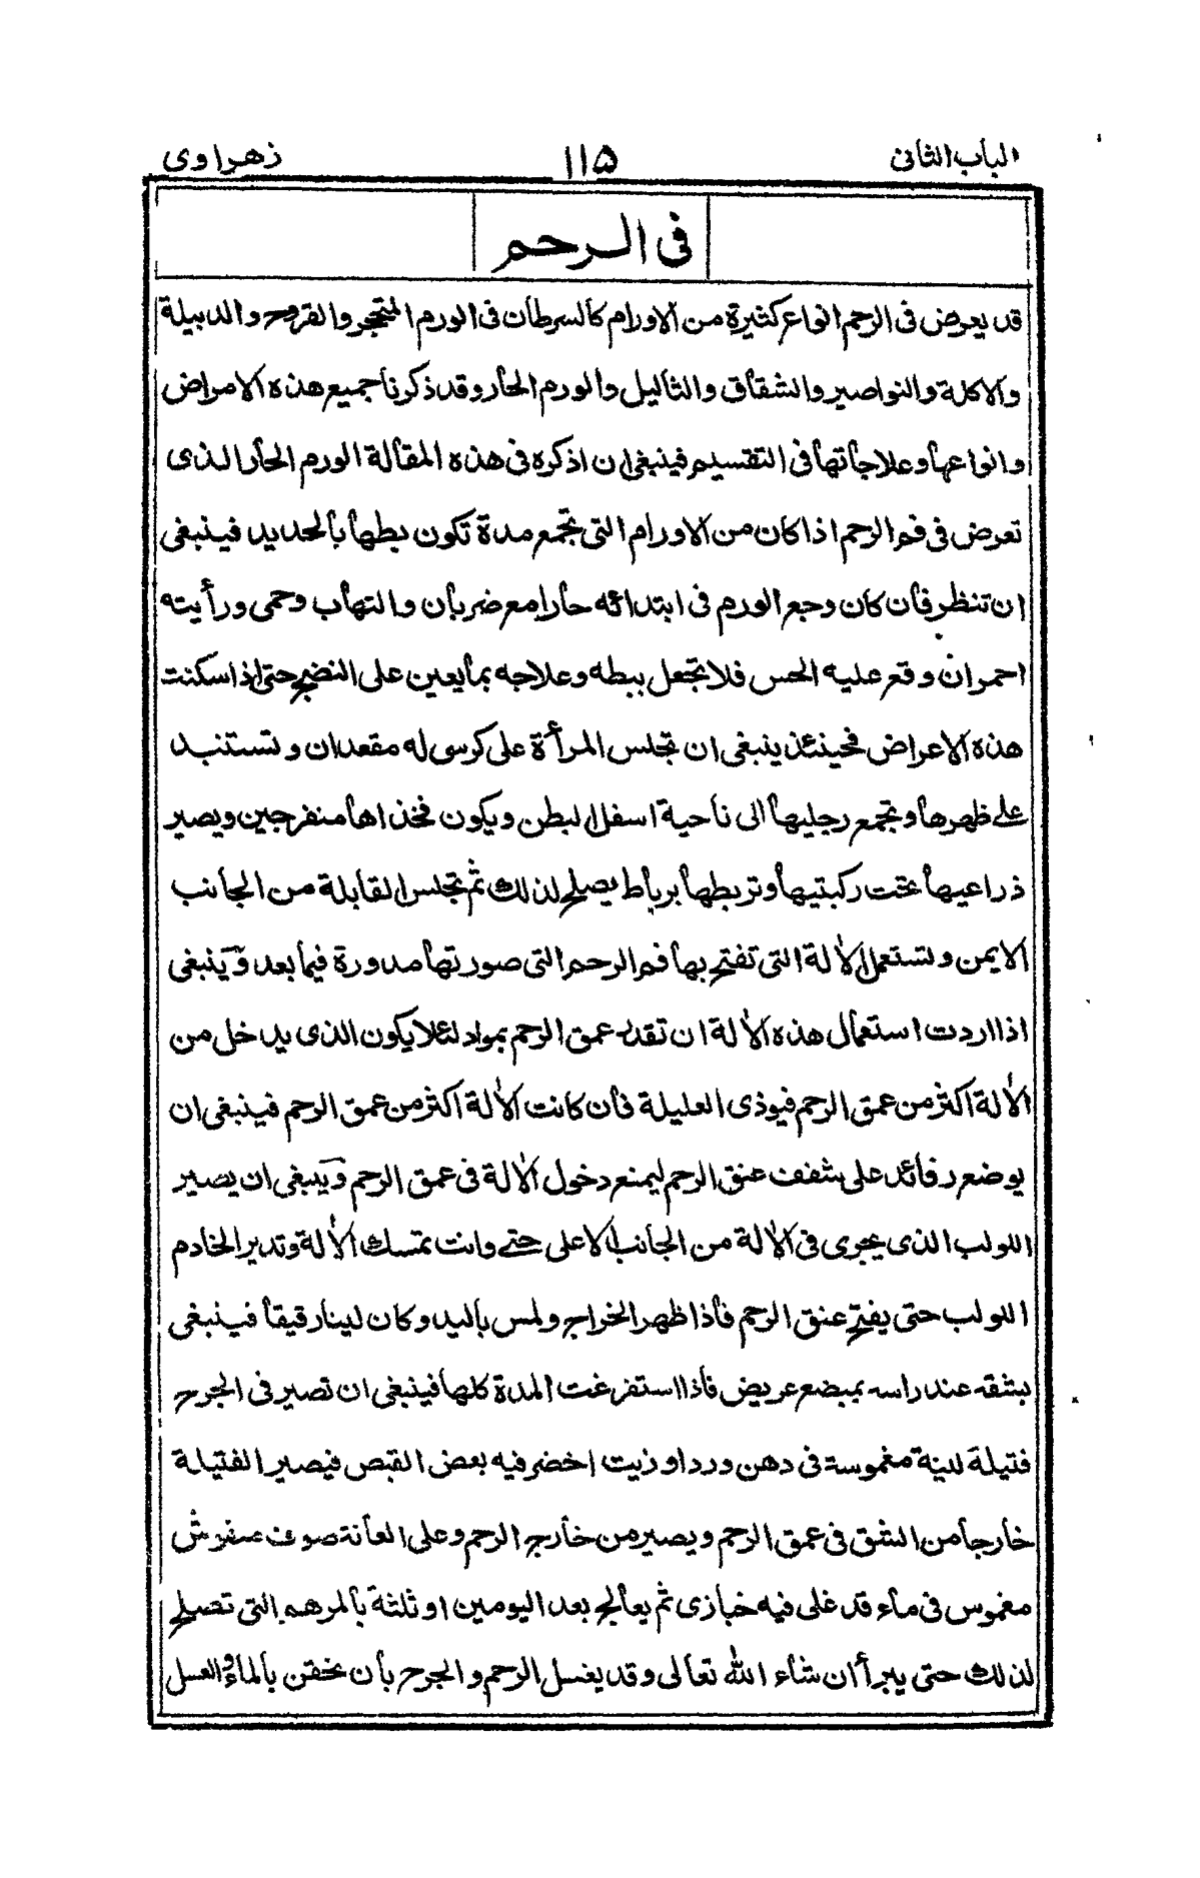 الباب الثانی ١١۵ زهراوی
فی الرحم
قد يعرض فى الرحم انواع كثيرة من الاورام كالسرطان فى الورم المتحجر والقروح والدبيلة
والاكلة والنواصير والشقاق والثاليل والورم الحار وقد ذكرنا جميع هذه الامراض
وانواعها وعلاجاتها فى التقسيم فينبغى ان اذكره فى هذه المقالة الورم الحار الذى
تعرض فى فم الرحم اذا كان من الاورام التى تجمع مدة تكون بطها بالحديد فينبغى
ان تنظر فان كان وجع الورم فى ابتدائه حارا مع ضربان والتهاب وحمى ورأيته
احمر ان وقع عليه الحس فلا تجعل ببطه وعلاجه بما يعين على النضج حتى اذا سكنت
هذه الاعراض فحينئذ ينبغى ان تجلس المرأة على كرسى له مقعدان وتستند
على ظهرها وتجمع رجليها الى ناحية اسفل البطن ويكون فخذاها منفرجين ويصير
ذراعيها تحت ركبتيها وتربطها برباط يصلح لذلك ثم تجلس القابلة من الجانب
الايمن وتستعمل الألة التى تفتح بها فم الرحم التى صورتها مدورة فيما بعد وينبغى
اذا اردت استعمال هذه الألة ان تقدر عمق الرحم بمواد لئلا يكون الذى يدخل من
الألة اكثر من عمق الرحم فيوذى العليلة فان كانت الألة اكثر من عمق الرحم فينبغى ان
يوضع رفائد على شفف عنق الرحم ليمنع دخول الألة فى عمق الرحم وينبغى ان يصير
اللولب الذى يجرى فى الألة من الجانب الاعلى حتے وانت تمسك الألة وتدير الخادم
اللولب حتى يفتح عنق الرحم فاذا ظهر الخراج ولمس باليد وكان لينا رقيقا فينبغى
بشقه عند راسه بمبضع عريض فاذا استفرغت المدة كلها فينبغى ان تصير فى الجرح
فتيلة لينة مغموسة فى دهن ورد او زيت اخضر فيه بعض القبص فيصير الفتيلة
خارجا من الشق فى عمق الرحم ويصير من خارج الرحم وعلى العانة صوف منفوش
مغموس فى ماء قد غلى فيه خبازى ثم يعالج بعد اليومين او ثلثة بالمرهم التى تصلح
لذلك حتى يبرأ ان شاء الله تعالى وقد يغسل الرحم والجرح بان نحقن بالماء والعسل